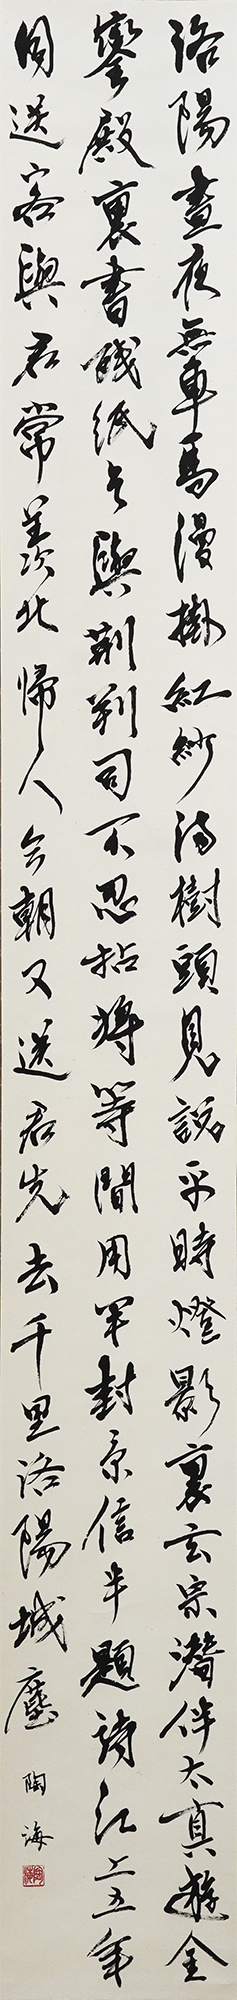 洛陽晝夜無車馬漫掛紅紗滿樹頭見說平時燈影裏玄宗潛伴太真遊金
鑾殿裏書殘紙乞與荊判司不忍拈將等閒用半封京信半題詩江上五年
同送客與君常羨北歸人今朝又送君先去千里洛陽城塵
陶海